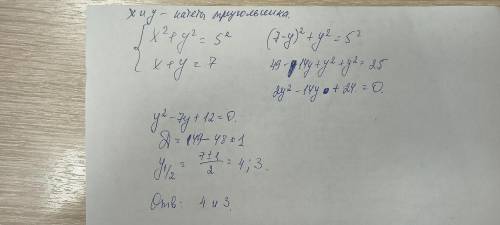 x и y – катеты треугольника.
{ x² + y² = 5²
x + y = 7
(7-y)² + y² = 5²
49 - 14y + y² + y² = 25
2y² - 14y + 24 = 0.
y² - 7y + 12 = 0.
D = 49 - 48 = 1
y₁/₂ = (7±1)/2 = 4; 3.
Отв: 4 и 3.